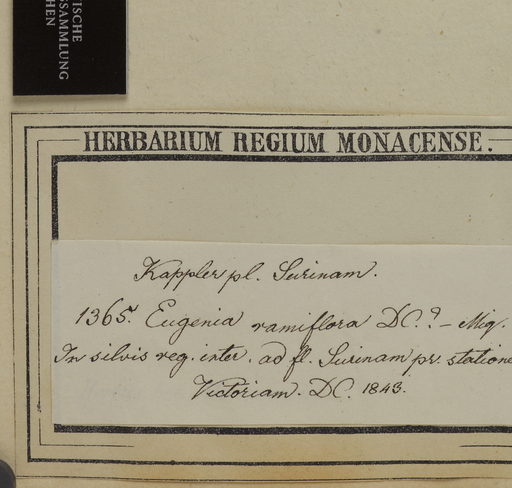 TISCHE
SSAMMLUNG
CHEN
HERBARIUM REGIUM MONACENSE.
Kappler pl. Surinam.
1365. Eugenia ramiflora DC.? – Miq.
In silvis reg. inter. ad fl. Surinam pr. statione
Victoriam. DC. 1843.